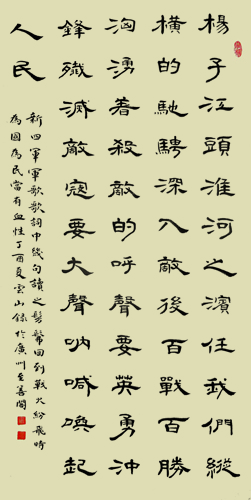 楊子江頭淮河之濱任我們縱
橫的馳騁深入敵後百戰百勝
洶湧著殺敵的呼聲要英勇沖
鋒殲滅敵寇要大聲吶喊喚起
人民
新四軍軍歌歌詞中幾句讀之髣髴回到戰火紛飛時
為國為民當有血性丁酉夏雲山錄於廣州至善閣